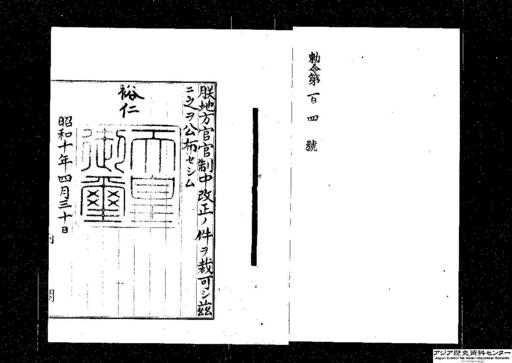 勅令第一百四號
朕地方官官制中改正ノ件ヲ裁可シ茲
ニ之ヲ公布セシム
裕仁
天皇
御璽
昭和十年四月三十日
内閣
アジア歴史資料センター
Japan Center for Asian Historical Records